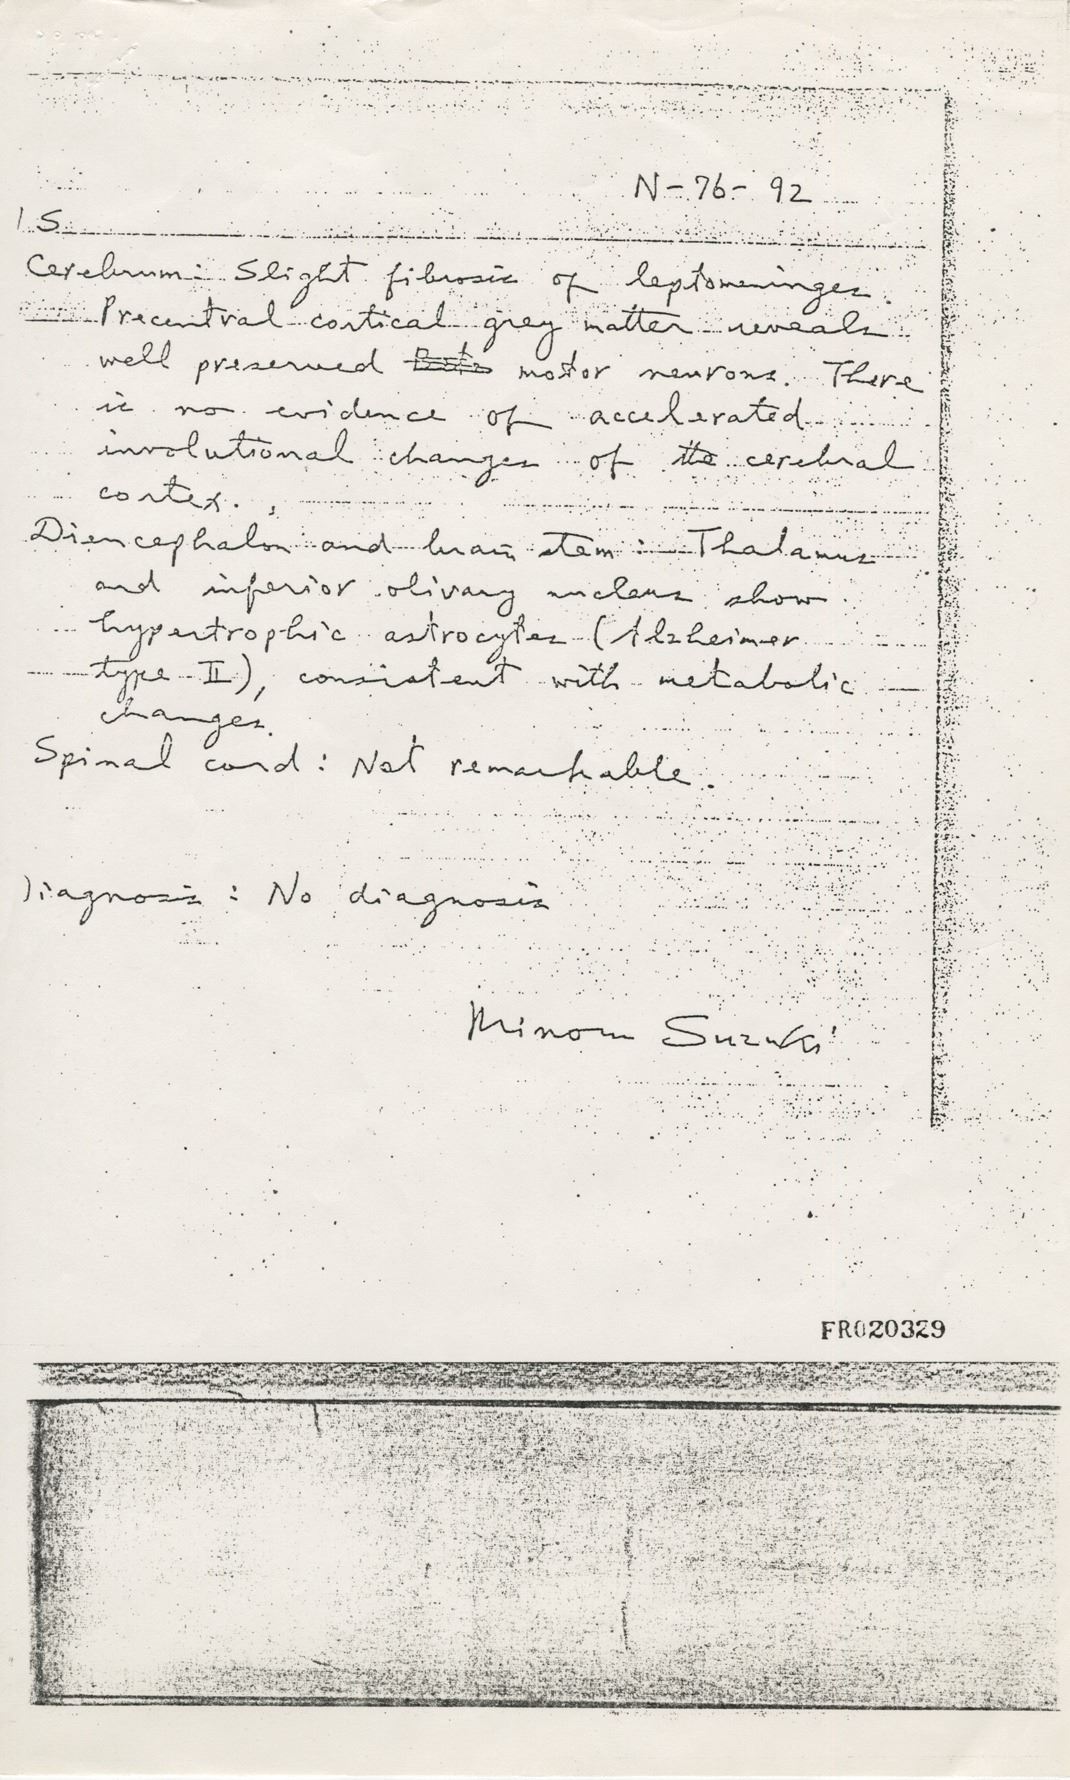 N-76-92
S
Cerebrum: Slight fibrosis of leptomeninges.
Precentral cortical grey matter reveals
well preserved motor neurons. There
is no evidence of accelerated
involutional changes of the cerebral
cortex.
Diencephalon and brain stem: Thalamus
and inferior olivary nucleus show
hypertrophic astrocytes (Alzheimer
type II), consistent with metabolic
changes.
Spinal cord: Not remarkable.
Diagnosis: No diagnosis
Minoru Suzuki
FR020329